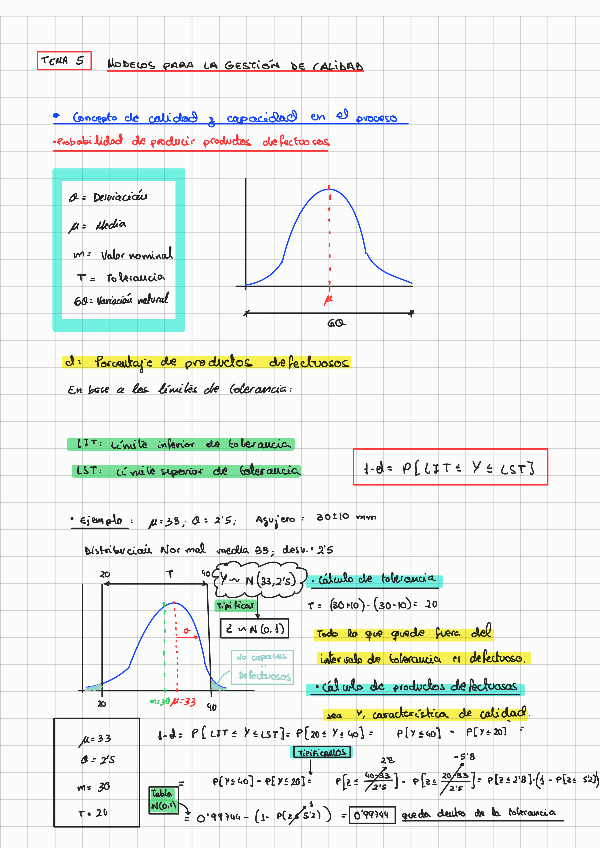 TEMA 5 MODELOS PARA LA GESTIÓN DE CALIDAD
• Concepto de calidad y capacidad en el proceso
• Probabilidad de producir productos defectuosos
σ = Desviación
μ = Media
m = Valor nominal
T = Tolerancia
6σ = Variación natural
μ
6σ
d: Porcentaje de productos defectuosos
En base a los límites de tolerancia:
LIT: Límite inferior de tolerancia
LST: Límite superior de tolerancia
1-d = P[LIT ≤ Y ≤ LST]
• Ejemplo: μ=33; σ = 2'5; Agujero: 30±10 mm
Distribución Normal media 33; desv. = 2'5
20 T 40
Y ~ N(33,2'5)
Tipificar
Z ~ N(0,1)
σ
No capaces
Defectuosos
20 m=30 μ=33 40
• Cálculo de tolerancia
T = (30+10) - (30-10) = 20
Todo lo que quede fuera del
intervalo de tolerancia es defectuoso.
• Cálculo de productos defectuosos
sea Y, característica de calidad.
μ = 33
σ = 2'5
m = 30
T = 20
1-d = P[LIT ≤ Y ≤ LST] = P[20 ≤ Y ≤ 40] = P[Y≤40] - P[Y≤20] =
Tipificamos
2'8 -5'8
= P[Y≤40] - P[Y≤20] = P[Z ≤ 40-33/2'5] - P[Z ≤ 20-33/2'5] = P[Z≤2'8]-(1-P[Z≤ 5'2])
Tabla
N(0,1)
1
= 0'99744 - (1- P[Z≤5'2]) = 0'99744 queda dentro de la tolerancia